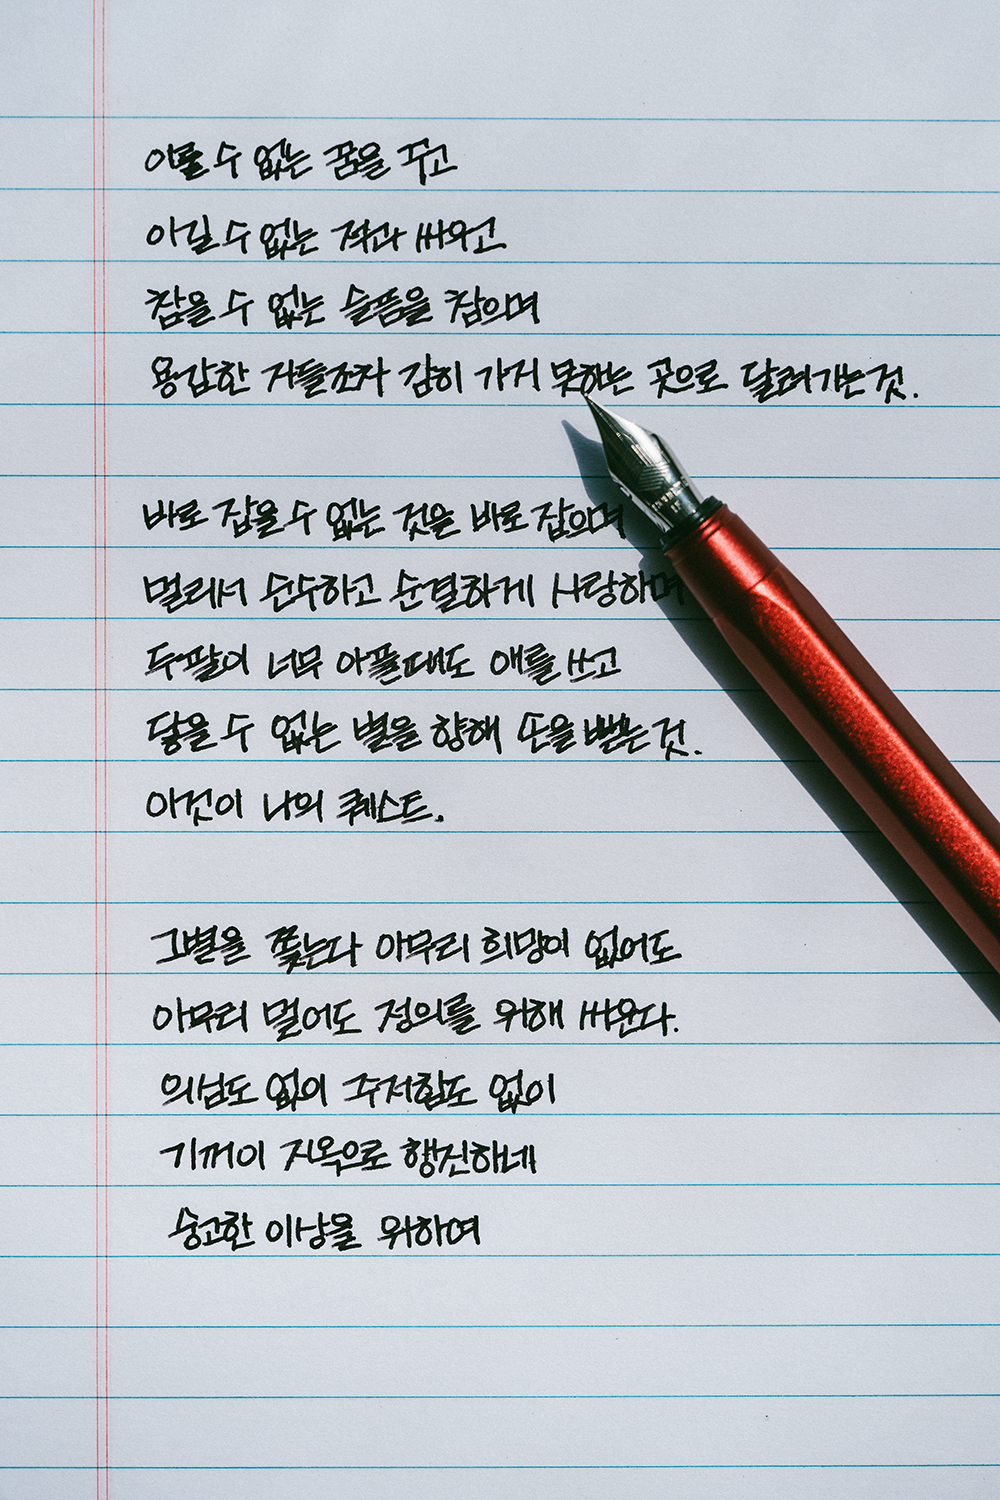 이룰 수 없는 꿈을 꾸고
이길 수 없는 적과 싸우고
참을 수 없는 슬픔을 참으며
용감한 자들조차 감히 가지 못하는 곳으로 달려가는 것.
바로 잡을 수 없는 것을 바로 잡으며
멀리서 순수하고 순결하게 사랑하며
두 팔이 너무 아플때도 애를 쓰고
닿을 수 없는 별을 향해 손을 뻗는 것.
이것이 나의 퀘스트.
그 별을 쫓는다 아무리 희망이 없어도
아무리 멀어도 정의를 위해 싸운다.
의심도 없이 주저함도 없이
기꺼이 지옥으로 행진하네
숭고한 이상을 위하여